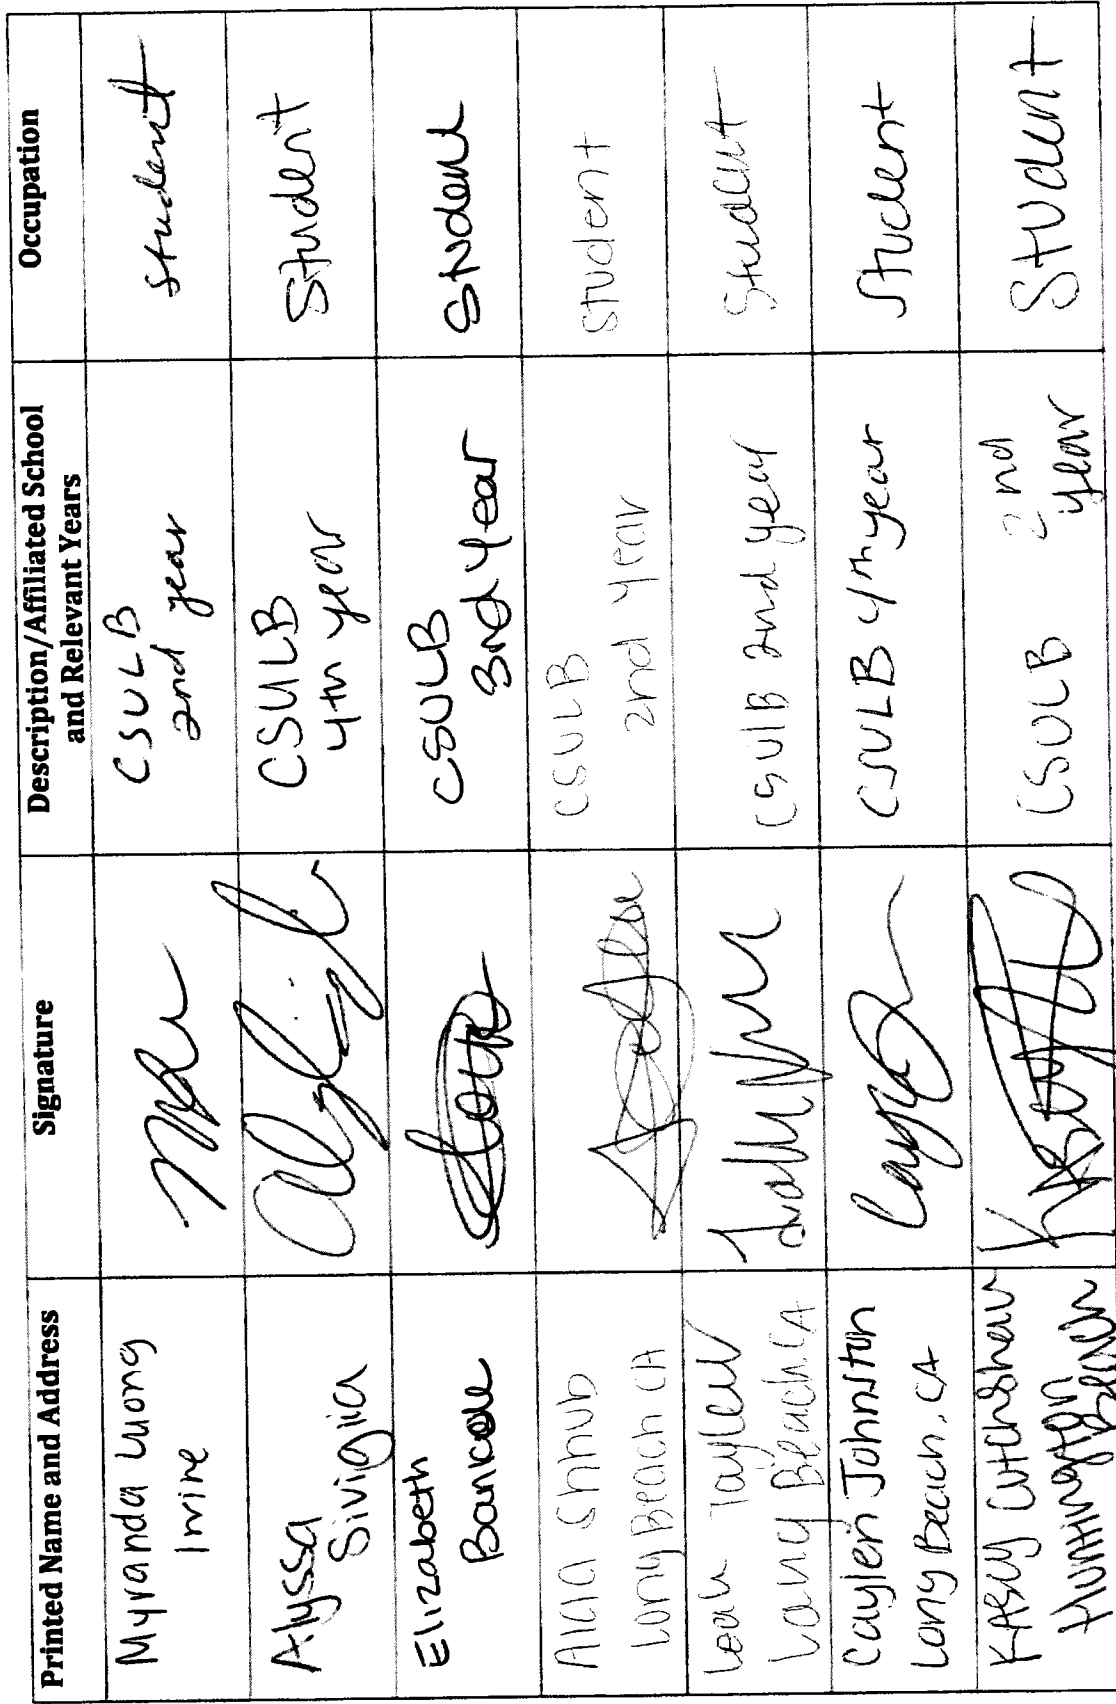 Printed Name and Address
Signature
Description/Affiliated School
and Relevant Years
Occupation
Myranda Luong
Irvine
CSULB
2nd year
student
Alyssa
Sivigjia
CSULB
4th year
Student
Elizabeth
CSULB
3rd year
Student
Long Beach CA
CSULB
2nd year
Student
Leah Tayler
Long Beach CA
CSULB 2nd year
Student
Caylen Johnston
Long Beach, CA
CSULB 4th year
Student
Kasey Cutchshaw
Huntington
Beach
CSULB
2nd
year
Student